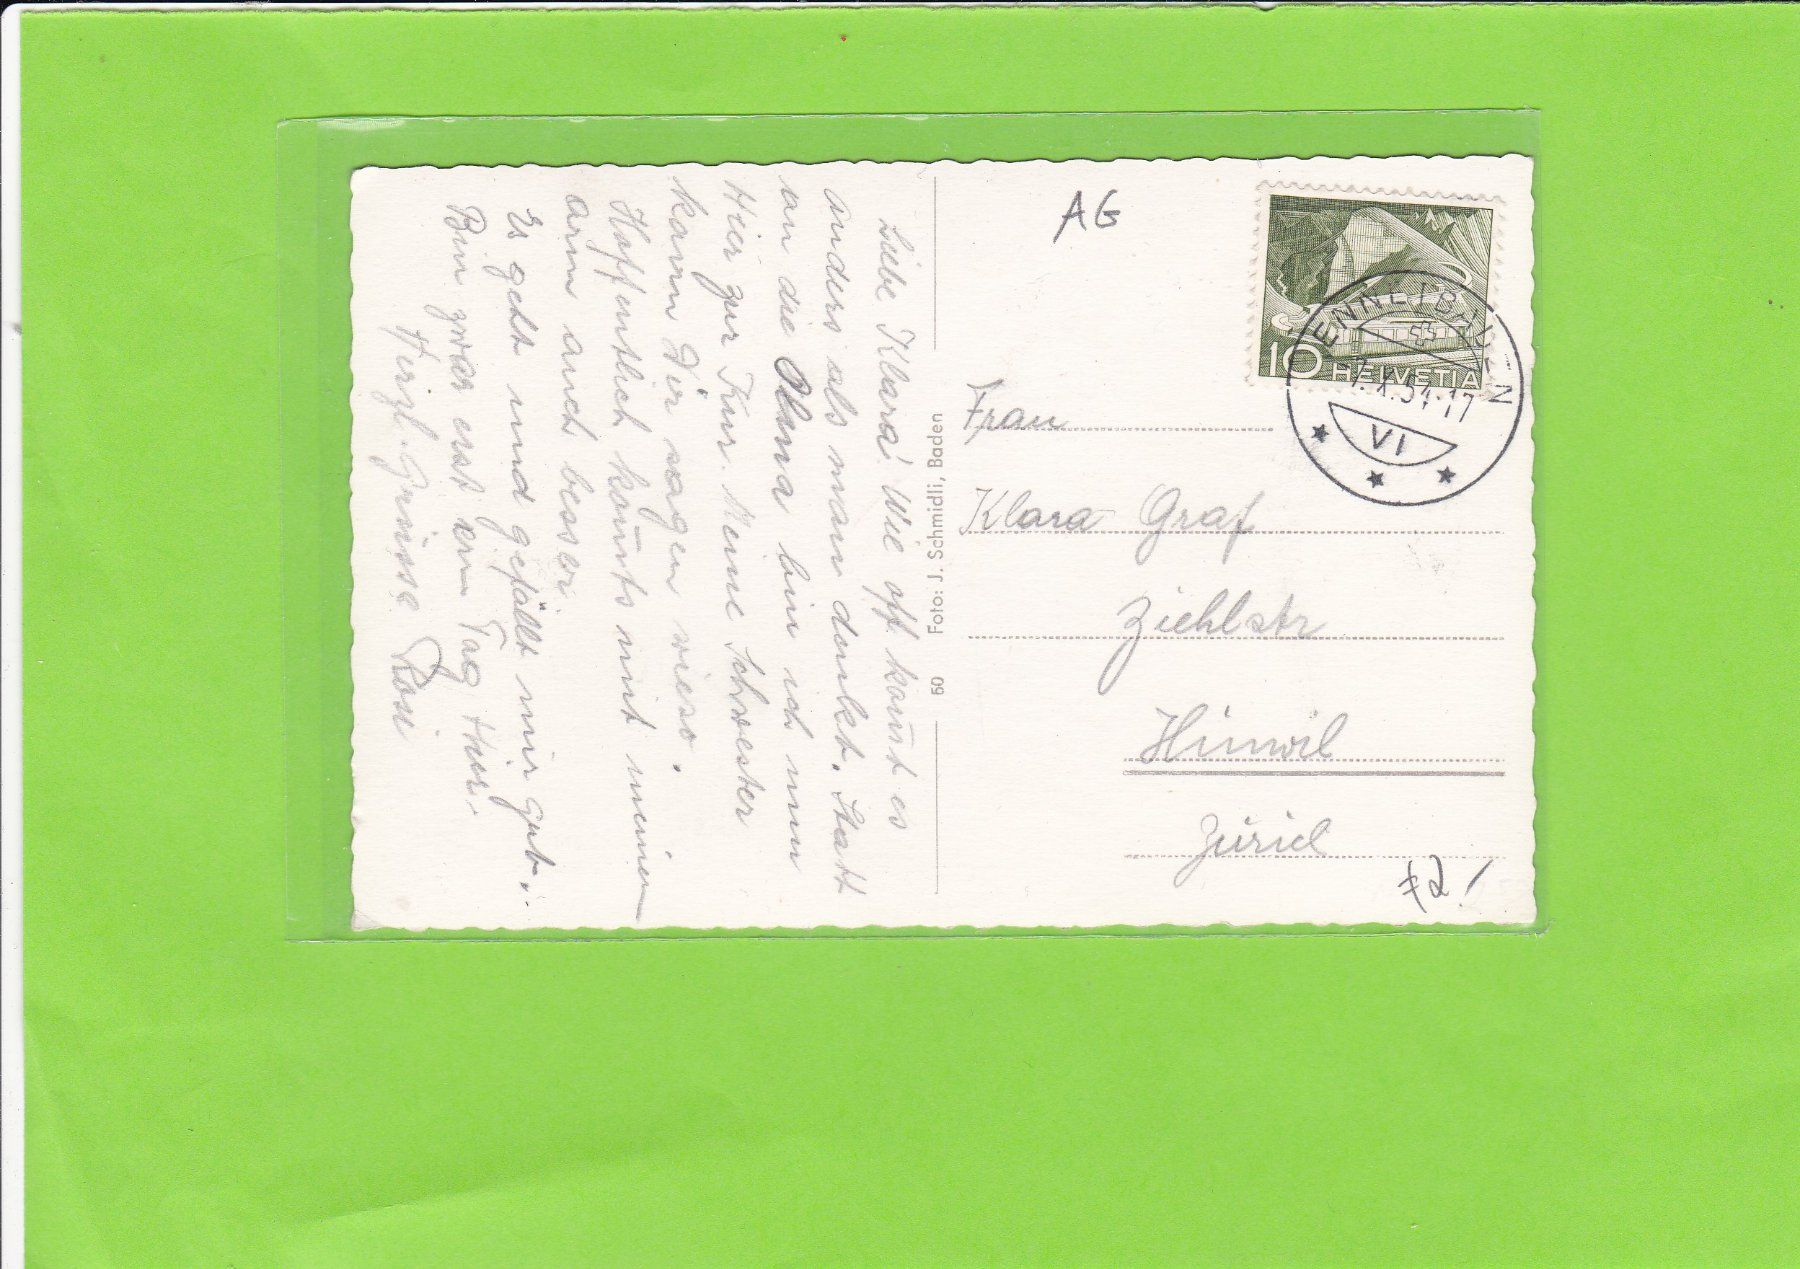 Liebe Klara! Wie oft kom̄t es
anders als man denkt. Statt
an die Olma bin ich nun
Hier zur Kur. Meine Schwester
kann Dir sagen wieso.
Hoffentlich kom̄ts mit meinem
arm auch besser.
Es geht und gefällt mir gut.
Bin zwar erst ein Tag Hier.
Herzl. Grüsse Rosi
60 Foto: J. Schmidli, Baden
AG
10 HELVETIA
ENNETBADEN
7.X.54-17
VI
Frau
Klara Graf
Ziehlstr
Hinwil
Zürich